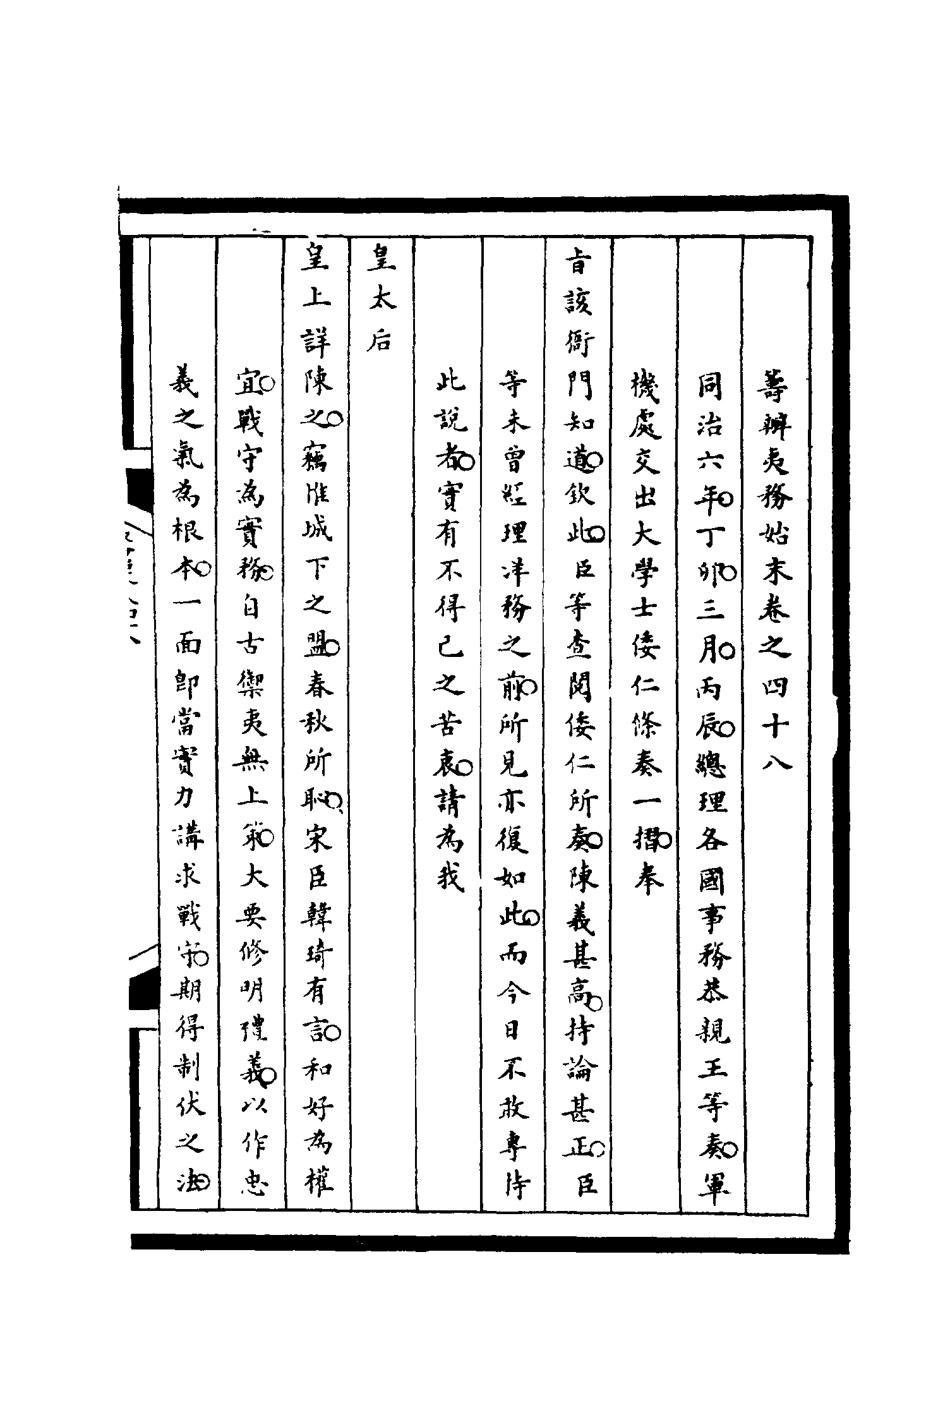 籌辦夷務始末卷之四十八
同治六年。丁卯。三月。丙辰。總理各國事務恭親王等奏。軍
機處交出大學士倭仁條奏一摺。奉
旨該衙門知道。欽此。臣等查閱倭仁所奏。陳義甚高。持論甚正。臣
等未曾經理洋務之前。所見亦復如此。而今日不敢專持
此說者。實有不得已之苦衷。請為我
皇太后
皇上詳陳之。竊惟城下之盟。春秋所恥。宋臣韓琦有言。和好為權
宜。戰守為實務。自古禦夷無上策。大要修明禮義。以作忠
義之氣為根本。一面即當實力講求戰守。期得制伏之法。